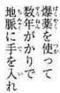 爆薬を使って
数年がかりで
地脈に手を入れ